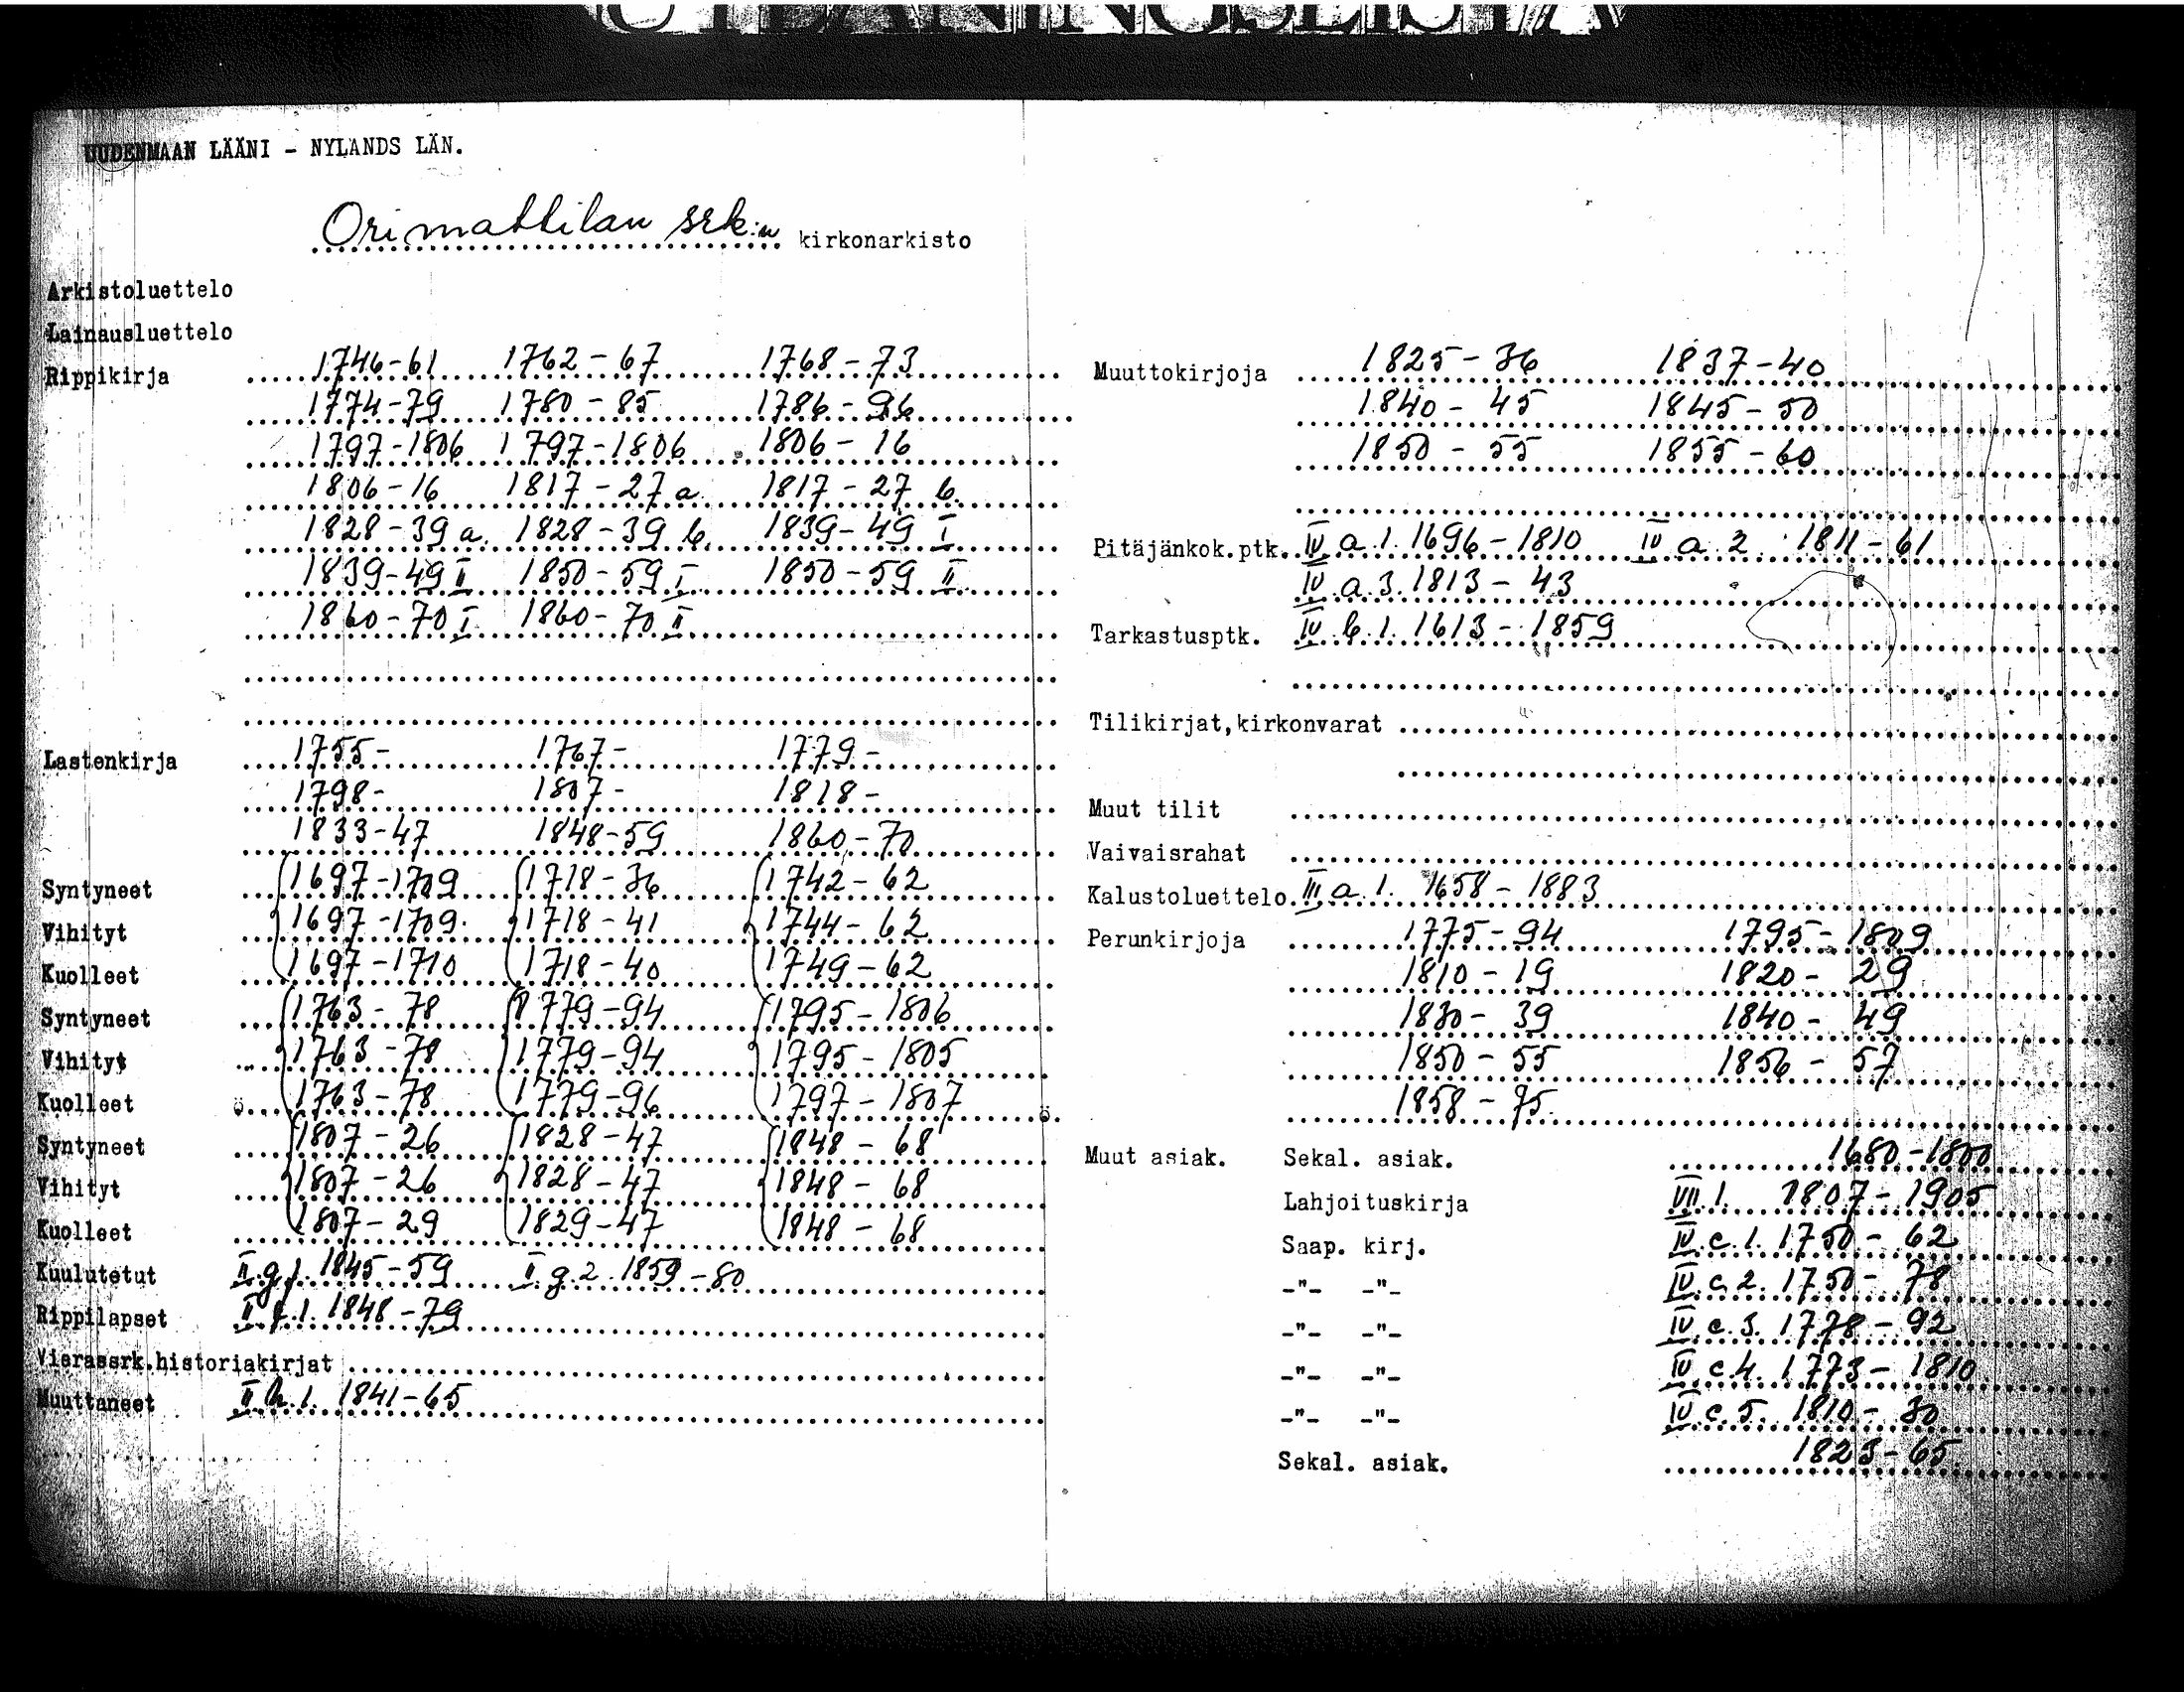 UUDENMAAN LÄÄNI - NYLANDS LÄN.
Orimattilan srk:n kirkonarkisto
Arkistoluettelo
Lainausluettelo
Rippikirja 1746-61 1762-67 1768-73
1774-79 1780-85 1786-96
1797-1806 1797-1806 1806-16
1806-16 1817-27 a 1817-27 b.
1828-39 a. 1828-39 b. 1839-49 I
1839-49 II 1850-59 I 1850-59 II
1860-70 I 1860-70 II
Lastenkirja 1755- 1767- 1779-
1798- 1807- 1818-
1833-47 1848-59 1860-70
Syntyneet 1697-1709 1718-36 1742-62
Vihityt 1697-1709. 1718-41 1744-62
Kuolleet 1697-1710 1718-40 1749-62
Syntyneet 1763-78 1779-94 1795-1806
Vihityt 1763-78 1779-94 1795-1805
Kuolleet 1763-78 1779-96 1797-1807
Syntyneet 1807-26 1828-47 1848-68
Vihityt 1807-26 1828-47 1848-68
Kuolleet 1807-29 1829-47 1848-68
Kuulutetut II g 1. 1845-59 II g. 2. 1859-80
Rippilapset II f. 1. 1848-79
Vierassrk.historiakirjat
Muuttaneet II h. 1. 1841-65
Muuttokirjoja 1825-36 1837-40
1840-45 1845-50
1850-55 1855-60
Pitäjänkok.ptk. IV a. 1. 1696-1810 IV a. 2 1811-61
IV a. 3. 1813-43
Tarkastusptk. IV b. 1. 1613-1859
Tilikirjat,kirkonvarat
Muut tilit
Vaivaisrahat
Kalustoluettelo III a. 1. 1658-1883
Perunkirjoja 1775-94 1795-1809
1810-19 1820-29
1830-39 1840-49
1850-55 1856-57
1858-75.
Muut asiak. Sekal. asiak. 1680-1800
Lahjoituskirja VII. 1. 1807-1905
Saap. kirj. IV. c. 1. 1750-62
-"- -"- IV. c. 2. 1750-78
-"- -"- IV. c. 3. 1778-92
-"- -"- IV c. 4. 1773-1810
-"- -"- IV. c. 5. 1810-30
Sekal. asiak. 1823-65.